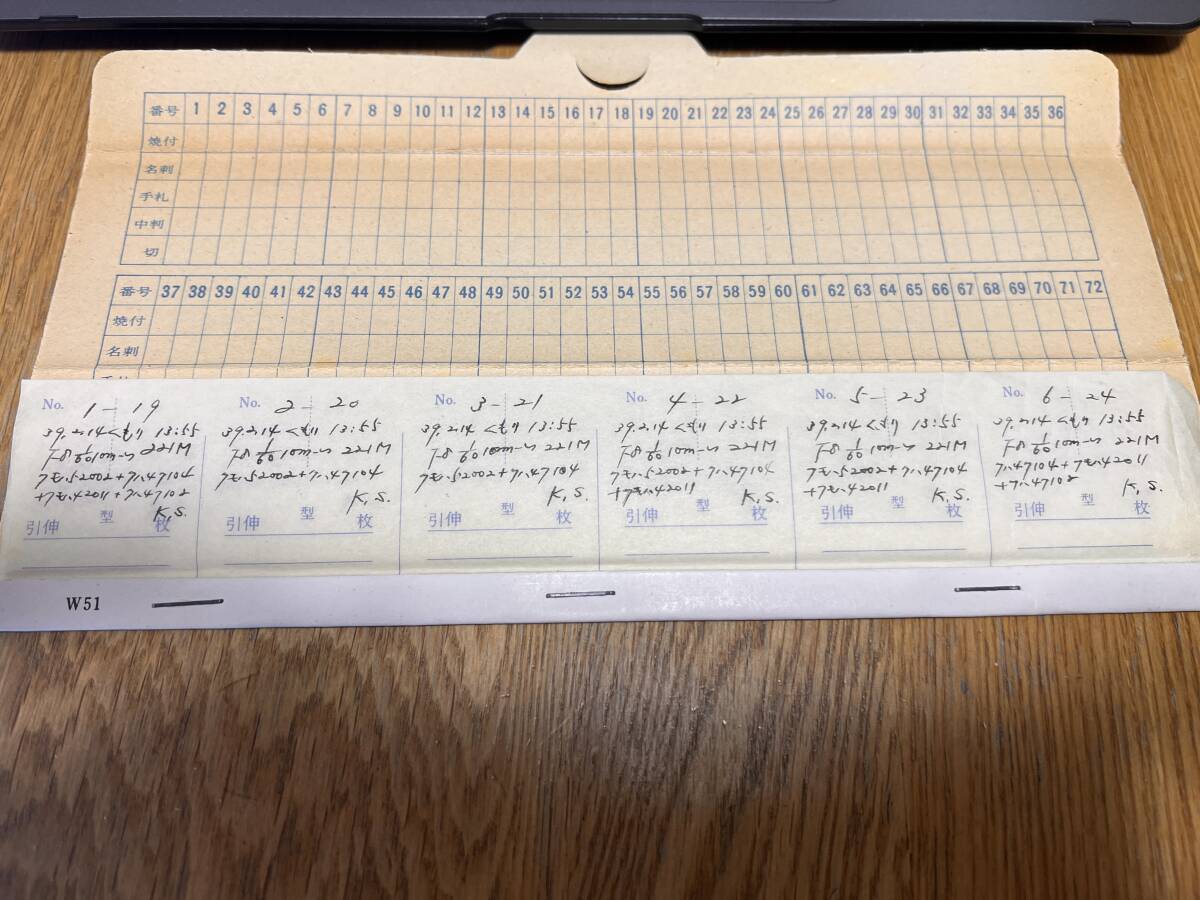 番号 1 2 3 4 5 6 7 8 9 10 11 12 13 14 15 16 17 18 19 20 21 22 23 24 25 26 27 28 29 30 31 32 33 34 35 36
焼付
名刺
手札
中判
切
番号 37 38 39 40 41 42 43 44 45 46 47 48 49 50 51 52 53 54 55 56 57 58 59 60 61 62 63 64 65 66 67 68 69 70 71 72
焼付
名刺
No. 1-19
39.2.14 くもり 13:55
F8 1/60 10m 221M
クモハ52002+クハ47104
+クモハ42011+クハ47102
K.S.
引伸 型 枚
No. 2-20
39.2.14 くもり 13:55
F8 1/60 10m 221M
クモハ52002+クハ47104
K.S.
引伸 型 枚
No. 3-21
39.2.14 くもり 13:55
F8 1/60 10m 221M
クモハ52002+クハ47104
K.S.
引伸 型 枚
No. 4-22
39.2.14 くもり 13:55
F8 1/60 10m 221M
クモハ52002+クハ47104
+クモハ42011
K.S.
引伸 型 枚
No. 5-23
39.2.14 くもり 13:55
F8 1/60 10m 221M
クモハ52002+クハ47104
+クモハ42011
K.S.
引伸 型 枚
No. 6-24
39.2.14 くもり 13:55
F8 1/60 10m 221M
クハ47104+クモハ42011
+クハ47102
K.S.
引伸 型 枚
W51